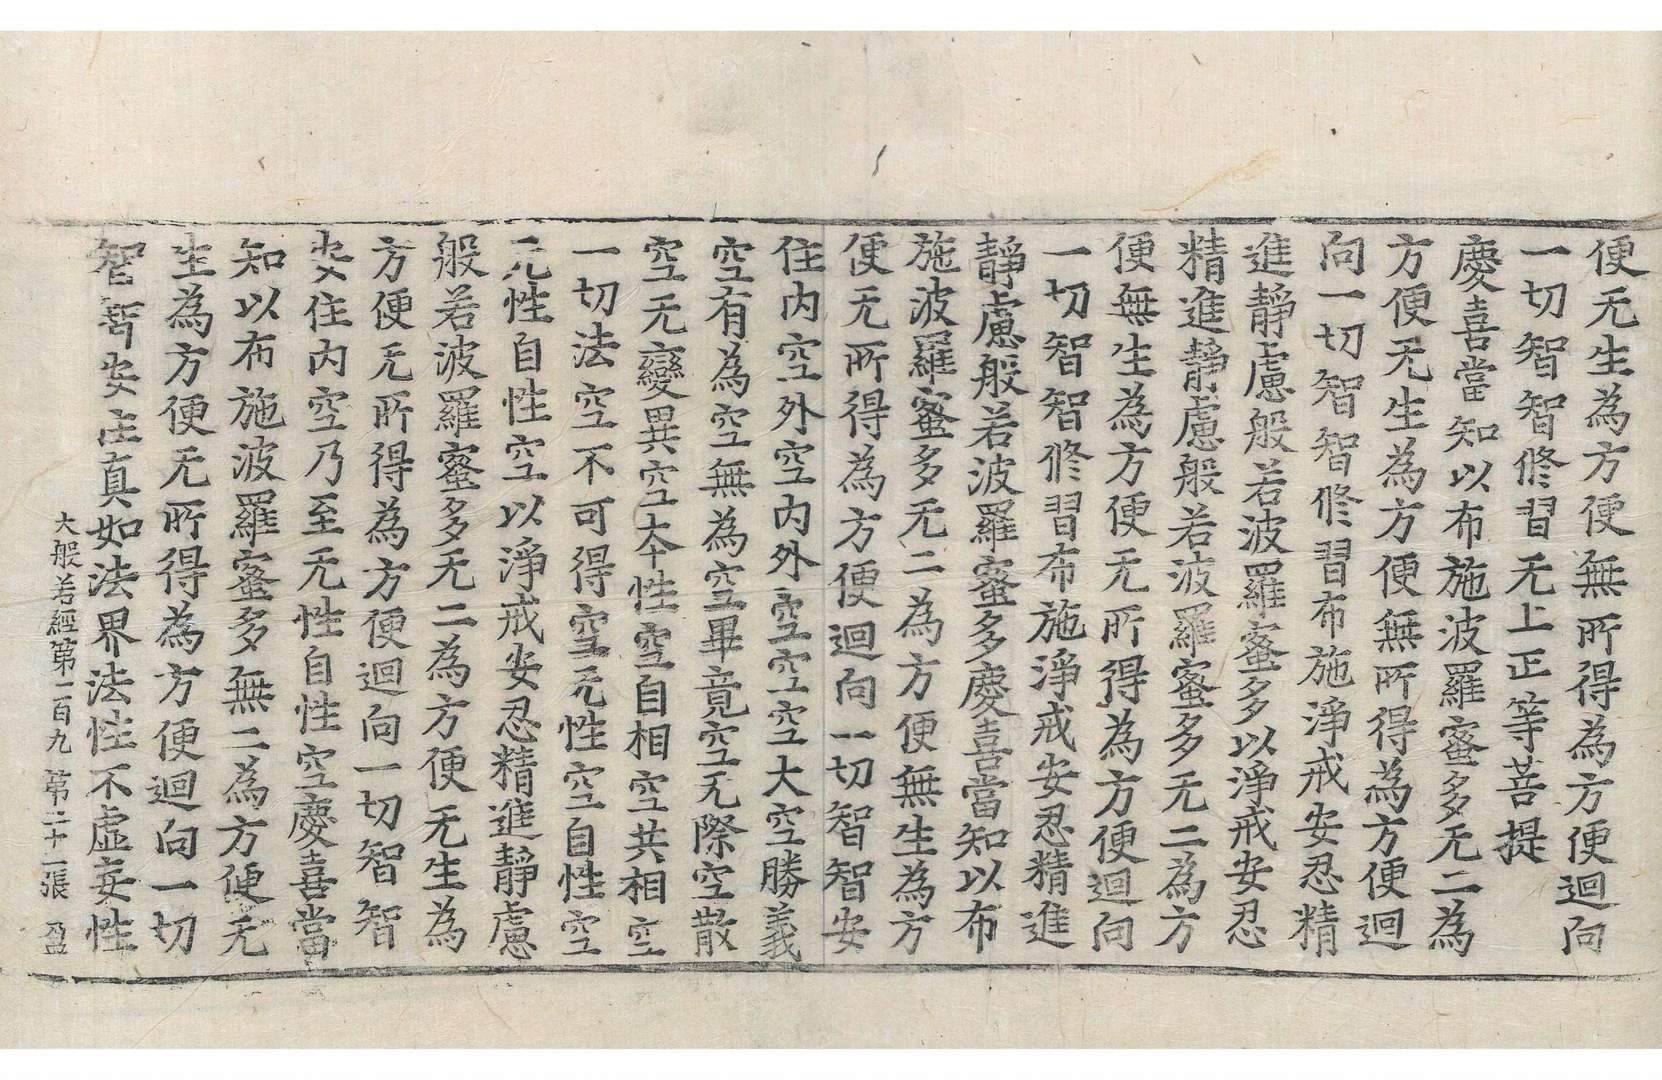 便无生為方便無所得為方便迴向
一切智智修習无上正等菩提
慶喜當知以布施波羅蜜多无二為
方便无生為方便無所得為方便迴
向一切智智修習布施淨戒安忍精
進靜慮般若波羅蜜多以淨戒安忍
精進靜慮般若波羅蜜多无二為方
便無生為方便无所得為方便迴向
一切智智修習布施淨戒安忍精進
靜慮般若波羅蜜多慶喜當知以布
施波羅蜜多无二為方便無生為方
便无所得為方便迴向一切智智安
住内空外空内外空空空大空勝義
空有為空無為空畢竟空无際空散
空无變異空夲性空自相空共相空
一切法空不可得空无性空自性空
无性自性空以淨戒安忍精進靜慮
般若波羅蜜多无二為方便无生為
方便无所得為方便迴向一切智智
安住内空乃至无性自性空慶喜當
知以布施波羅蜜多無二為方便无
生為方便无所得為方便迴向一切
智智安住真如法界法性不虛妄性
大般若經第一百九 第二十一張 盈